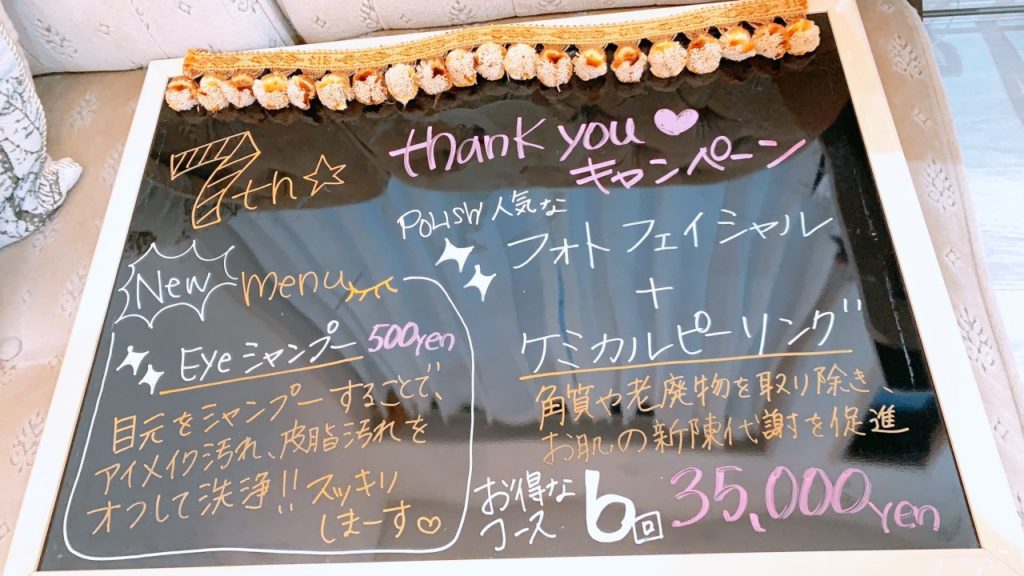 7th☆
thank you♥
キャンペーン
New menu
Eyeシャンプー 500yen
目元をシャンプーすることで、
アイメイク汚れ、皮脂汚れを
オフして洗浄!!スッキリ
しまーす♡
POLISH人気な
フォトフェイシャル
+
ケミカルピーリング
角質や老廃物を取り除き、
お肌の新陳代謝を促進
お得な
コース
6回
35,000yen